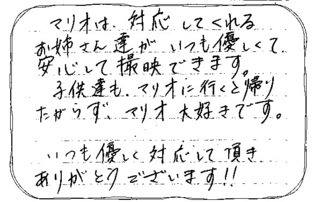 マリオは、対応してくれる
お姉さん達がいつも優しくて
安心して撮映できます。
子供達も、マリオに行くと帰り
たがらず、マリオ大好きです。
いつも優しく対応して頂き
ありがとうございます!!